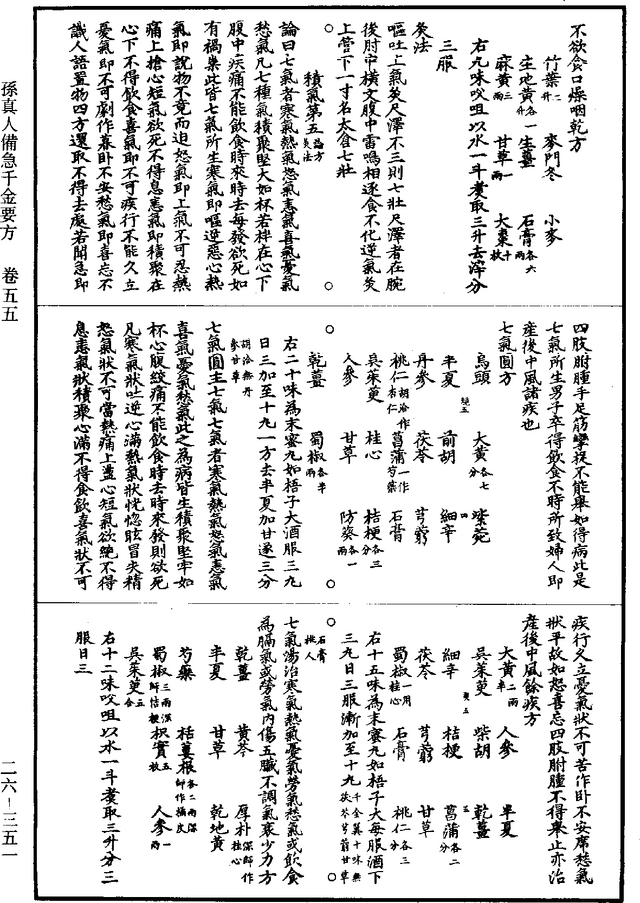 孫真人備急千金要方　卷五五
二六-三五一
不欲食口燥咽乾方
竹葉二升　麥門冬　小麥
生地黄各一升　生薑　石膏各六兩
麻黄三兩　甘草一兩　大棗十枚
右九味㕮咀以水一斗煮取三升去滓分
三服
灸法
嘔吐上氣灸尺澤不三則七壯尺澤者在腕
後肘中橫文腹中雷鳴相逐食不化逆氣灸
上管下一寸名太倉七壯
積氣第五論方灸法
論曰七氣者寒氣熱氣怒氣恚氣喜氣憂氣
愁氣凡七種氣積聚堅大如杯若柈在心下
腹中疾痛不能飲食時來時去每發欲死如
有禍祟此皆七氣所生寒氣即嘔逆惡心熱
氣即說物不竟而迫怒氣即上氣不可忍熱
痛上搶心短氣欲死不得息恚氣即積聚在
心下不得飲食喜氣即不可疾行不能久立
憂氣即不可劇作暮卧不安愁氣即喜忘不
識人語置物四方還取不得去處若聞急即
四肢胕腫手足筋攣捉不能舉如得病此是
七氣所生男子卒得飲食不時所致婦人即
産後中風諸疾也
七氣圓方
烏頭　大黄各七分　紫菀
半夏　前胡　細辛
丹參　茯苓　芎藭
桃仁胡洽作杏仁　菖蒲一作芍藥　石膏
吳茱萸　桂心　桔梗各三分
人參　甘草　防葵各一兩
乾薑　蜀椒各半兩
右二十味為末蜜丸如梧子大酒服三丸
日三加至十九一方去半夏加甘遂三分
胡洽無丹參甘草
七氣圓主七氣七氣者寒氣熱氣怒氣恚氣
喜氣憂氣愁氣此之為病皆生積聚堅牢如
杯心腹絞痛不能飲食時去時來發則欲死
凡寒氣狀吐逆心滿熱氣狀恍惚眩冒失精
怒氣狀不可當熱痛上盪心短氣欲絶不得
息恚氣狀積聚心滿不得食飲喜氣狀不可
疾行久立憂氣狀不可苦作卧不安席愁氣
狀平故如怒喜忘四肢胕腫不得舉止亦治
産後中風餘疾方
大黄二兩半　人參　半夏
吳茱萸　柴胡　乾薑
細辛　桔梗　菖蒲各二分
茯苓　芎藭　甘草
蜀椒一用桂心　石膏　桃仁各三分
右十五味為末蜜丸如梧子大每服酒下
三丸日三服漸加至十丸千金翼十味無茯苓芎藭甘草
石膏桃仁
七氣湯治寒氣熱氣憂氣勞氣愁氣或飲食
為膈氣或勞氣内傷五臟不調氣衰少力方
乾薑　黄芩　厚朴深師作桂心
半夏　甘草　乾地黄
芍藥　栝蔞根各二兩深師作橘皮
蜀椒三兩深師桔梗　枳實五枚　人參一兩
吳茱萸五合
右十二味㕮咀以水一斗煮取三升分三
服日三